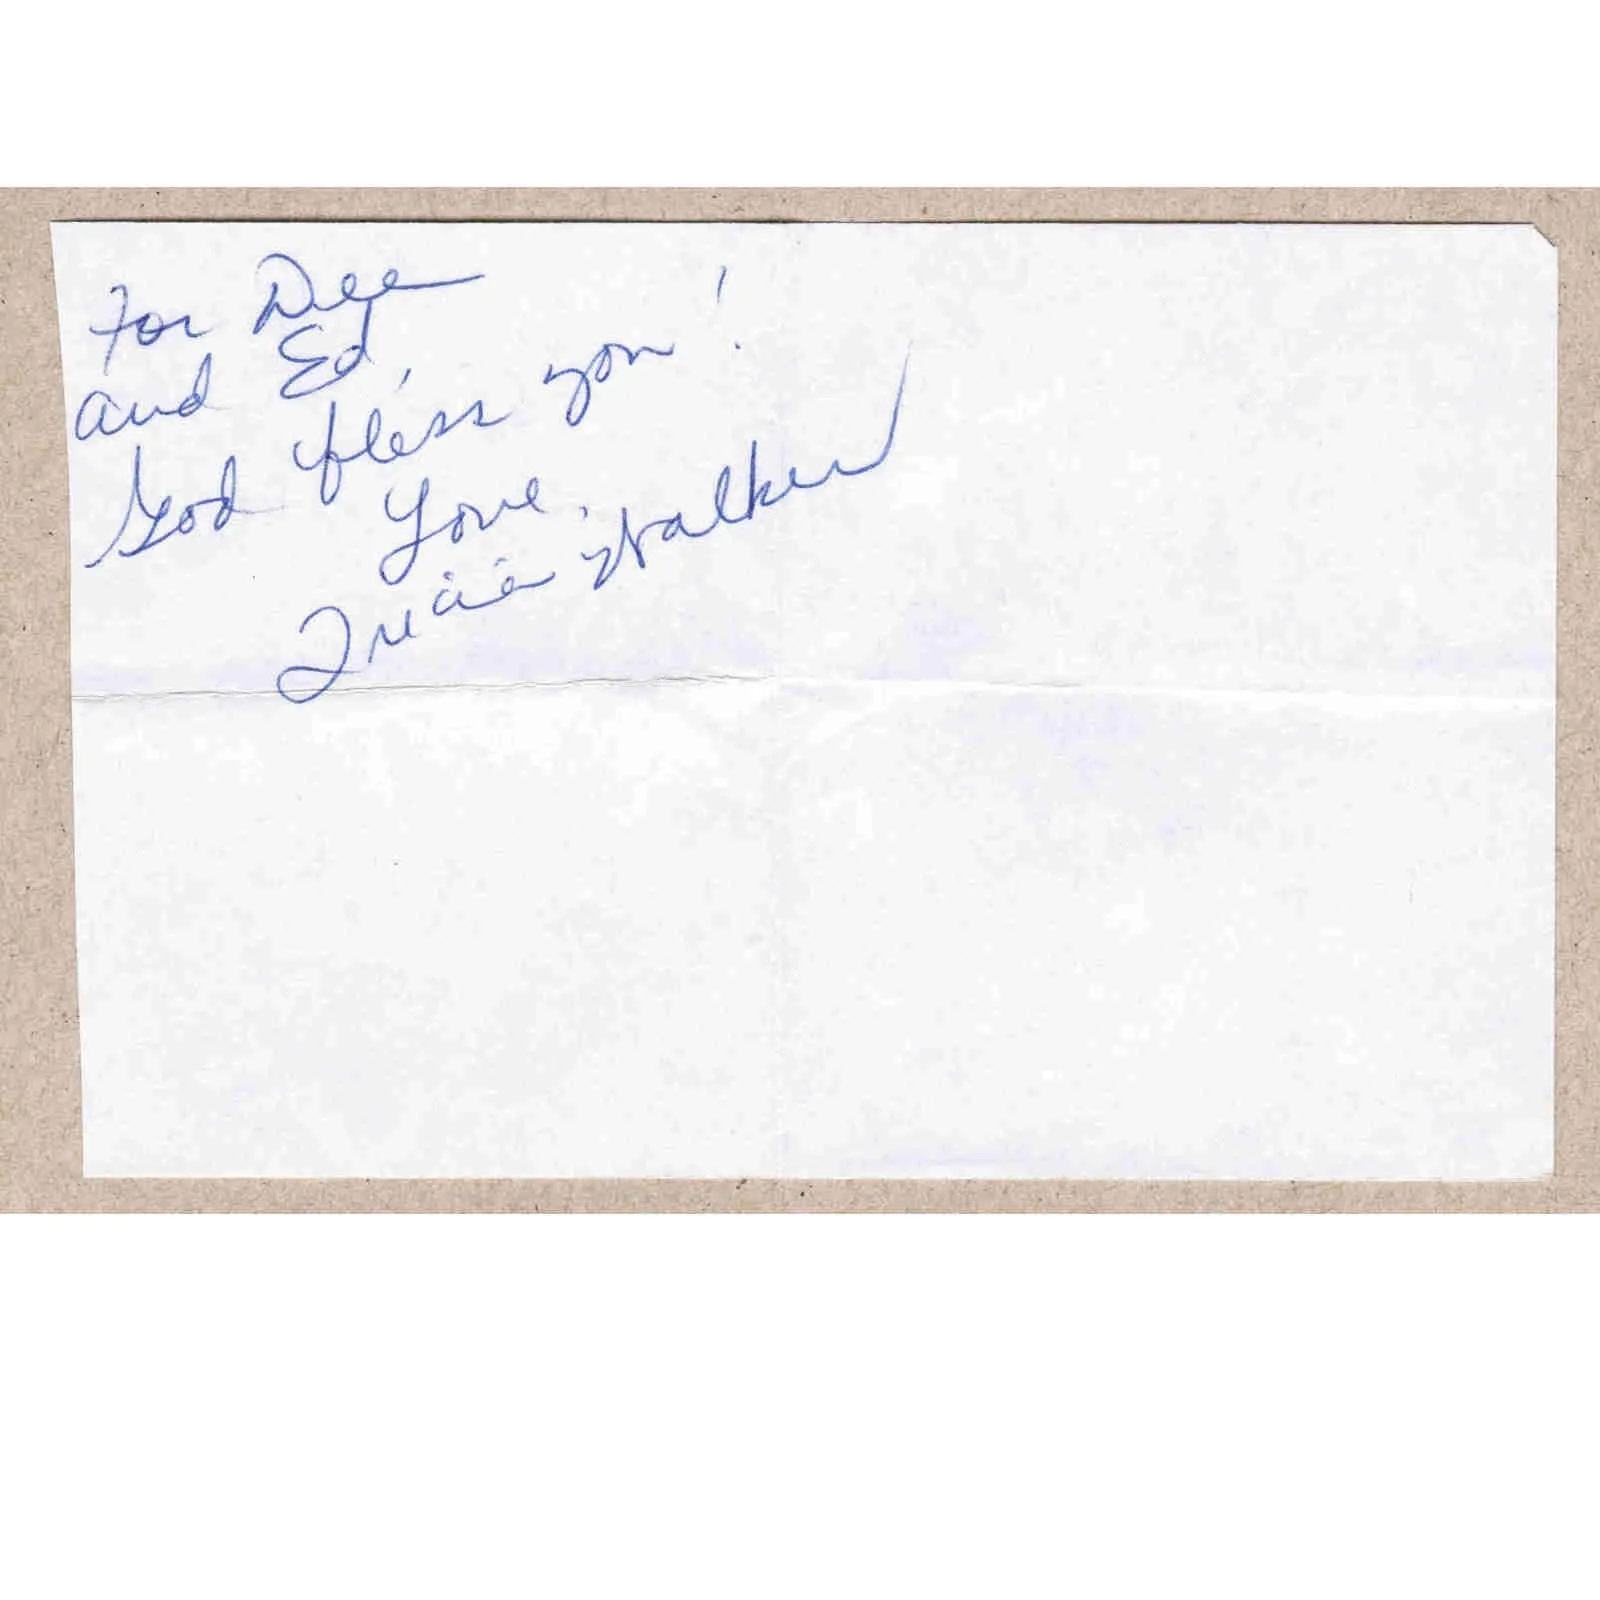 For Dee
and Ed,
God bless you!
Love,
Tricia Walker